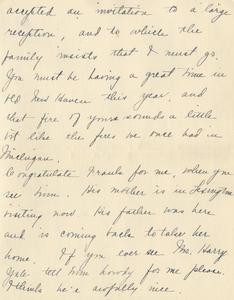 accepted an invitation to a large
reception, and to which the
family insists that I must go.
You must be having a great time in
old New Haven this year, and
that fire of yours sounds a little
bit like the fires we once had in
Michigan.
Congratulate for me, when you
see him. His mother is in Lexington
visiting now. His father was here
and is coming back to take her
home. If you ever see Mr. Harry
Yale tell him howdy for me please.
I think he's awfully nice.